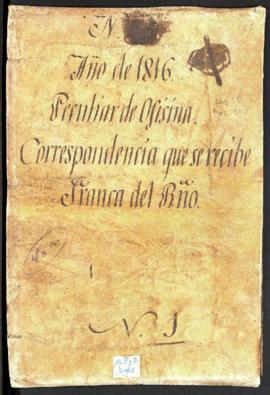 N
Año de 1816.
Peculiar de Ofisina.
Correspondencia que se recibe
Franca del Rño.
N. 1